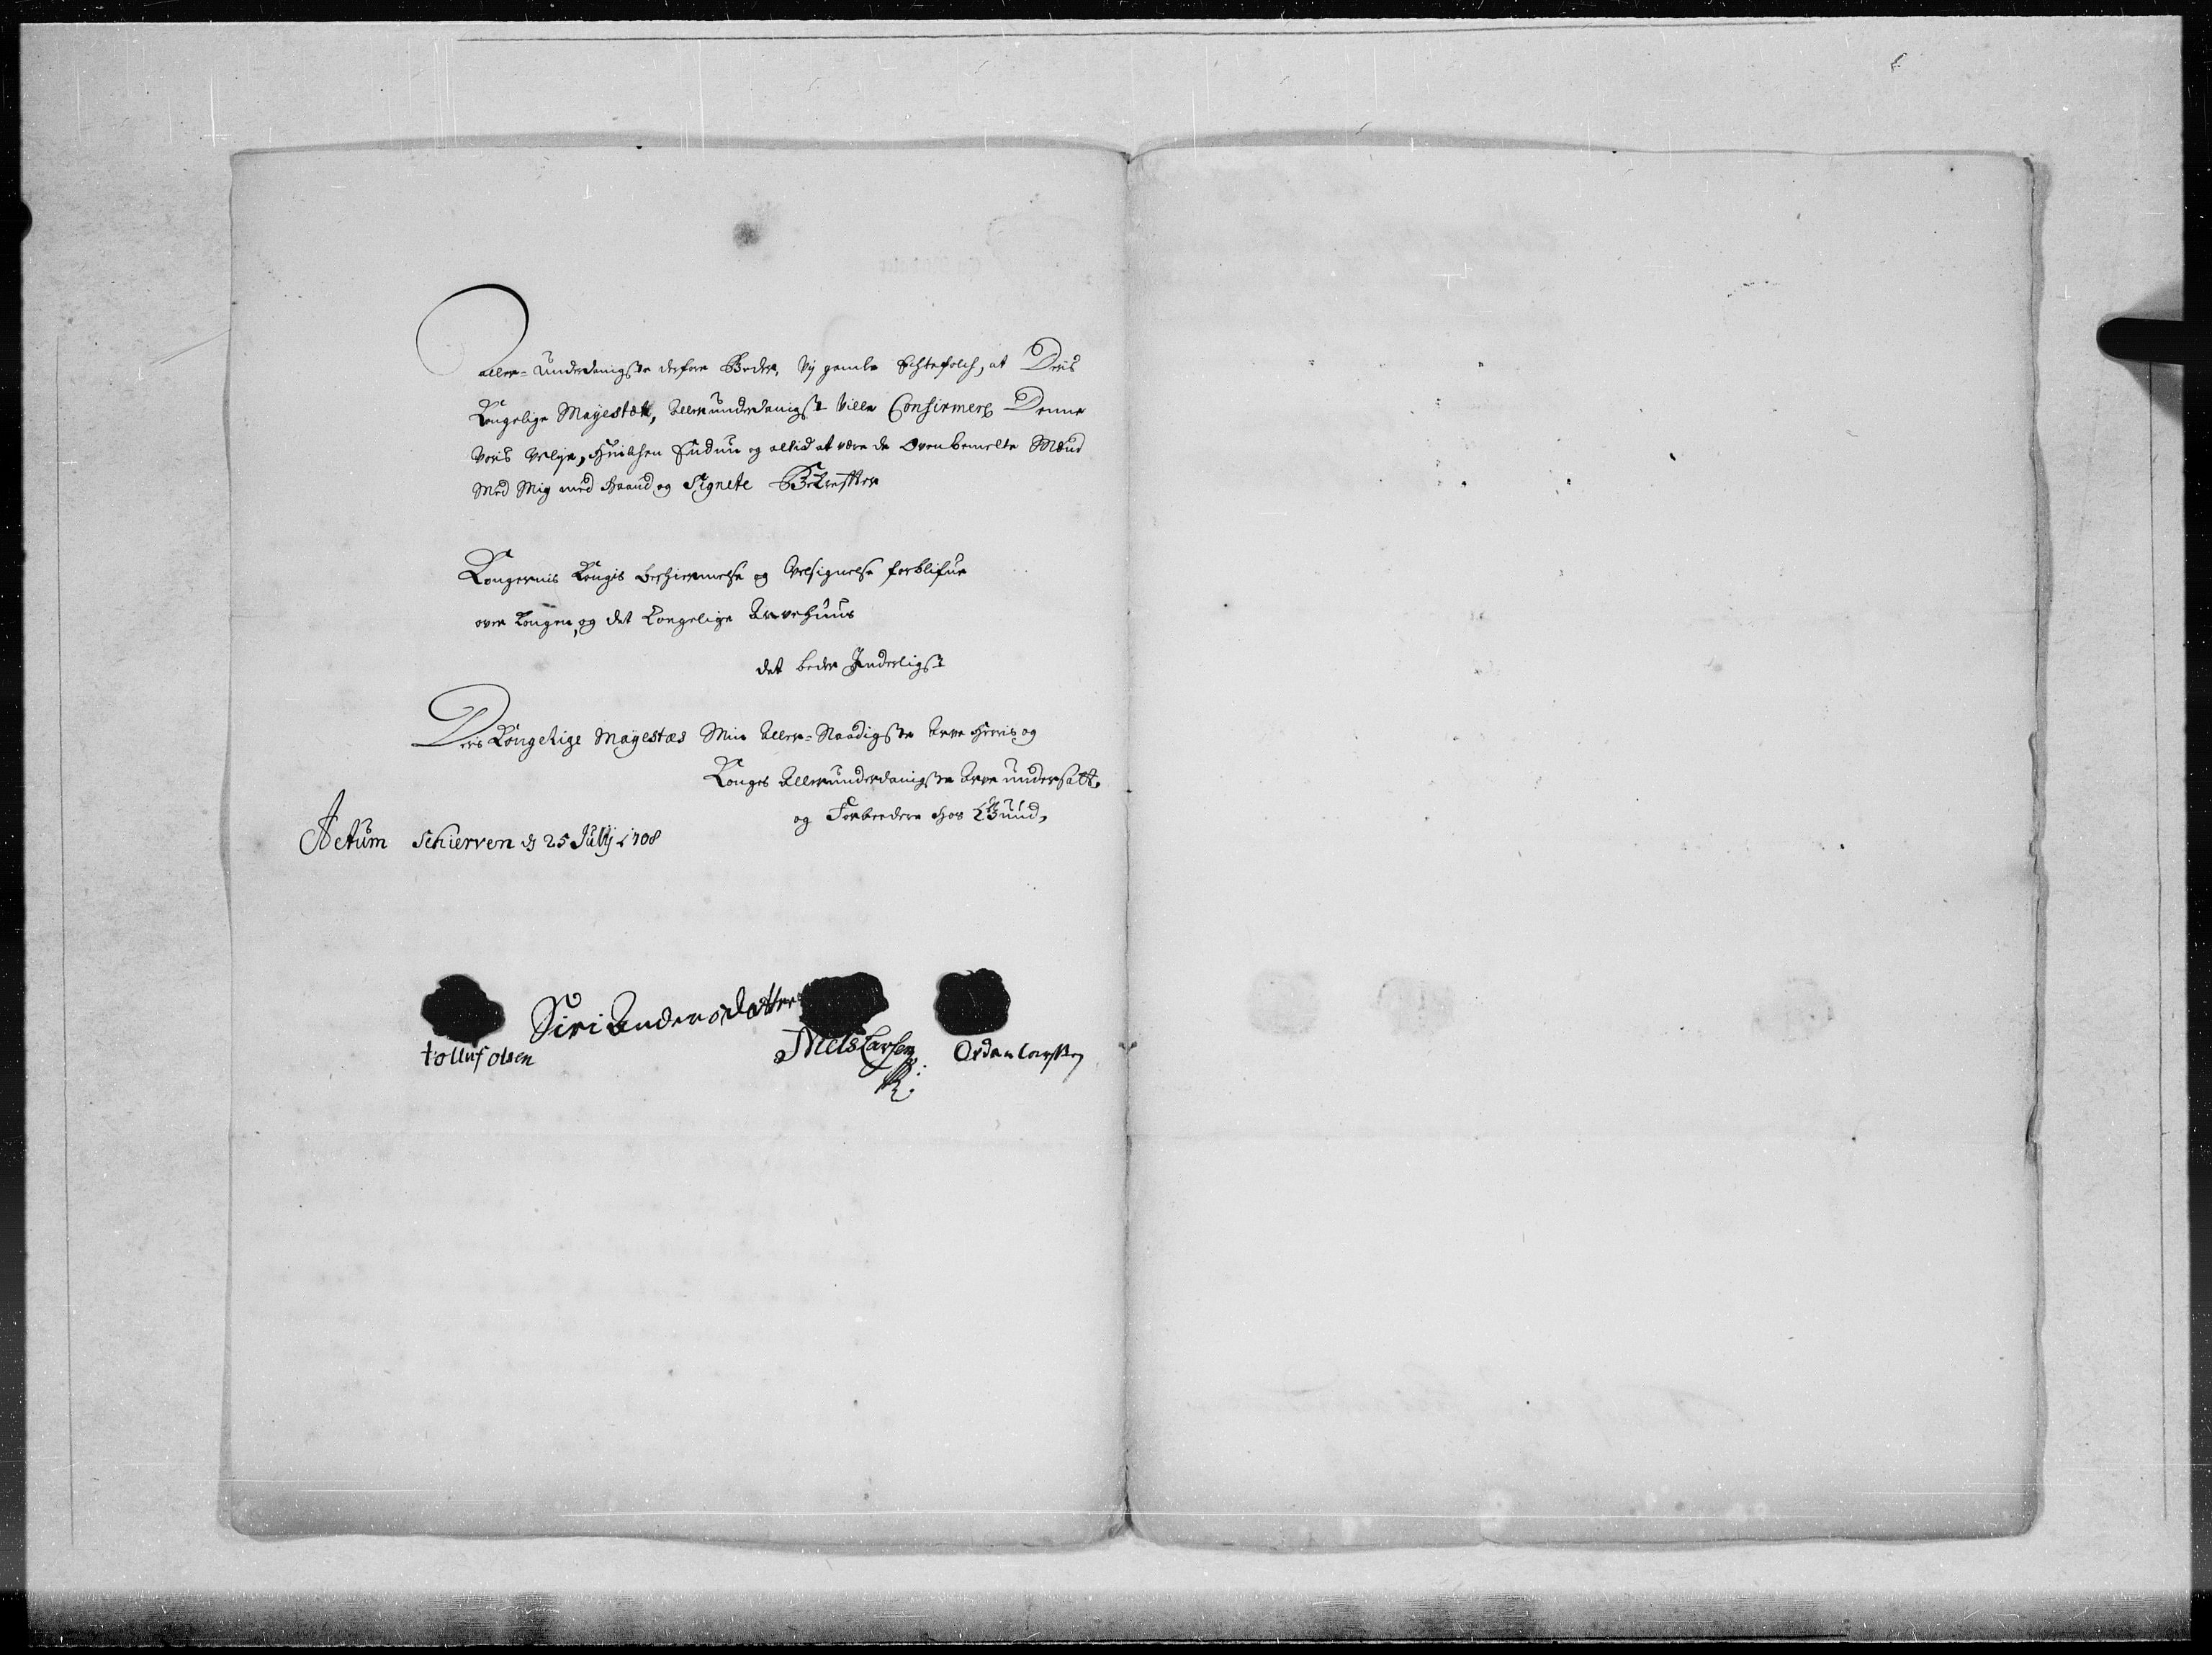 aller-underdanigste derfore Beder, Vij gamle Echtefolch, at Deris
Kongelige Mayestæt, Allerunderdanigst Ville Confirmere Denne
Voris Velije, Huilchen Endnu og altid at være de Ovenbemelte Mænd
Med Mig med Haand og Signete Bekreffter
Kongernis Kongis beschiermelse og Velsignelse forblifue
over Kongen, og det Kongelige Arvehuus
det beder Inderligst
Deris Kongelige Mayestæs Min Aller-Naadigste Arve Herris og
Konges Allerunderdanigste Arve undersatt
og Forbeedere hos Gud,
Actum Schierven d 25 Julij 1708
Siri Andersdatter
tolluf olsen
Niels Larsen
Ordan larssen